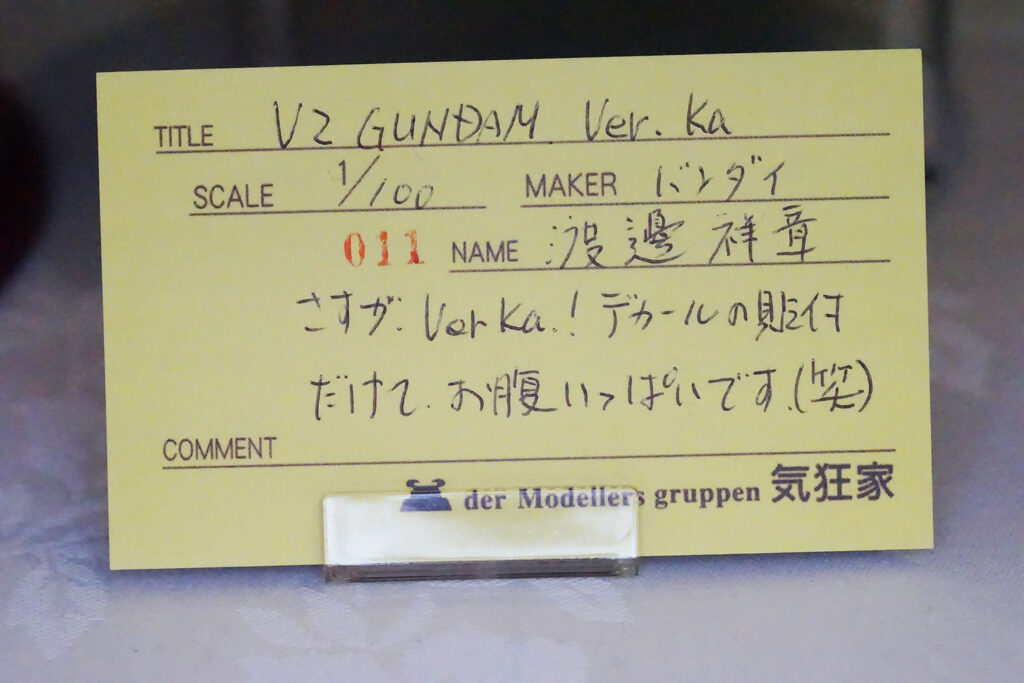 TITLE V2 GUNDAM Ver. Ka
SCALE 1/100 MAKER バンダイ
011 NAME 渡邊 祥章
さすが. Ver Ka.! デカールの貼付
だけで. お腹いっぱいです.(笑)
COMMENT
der Modellers gruppen 気狂家